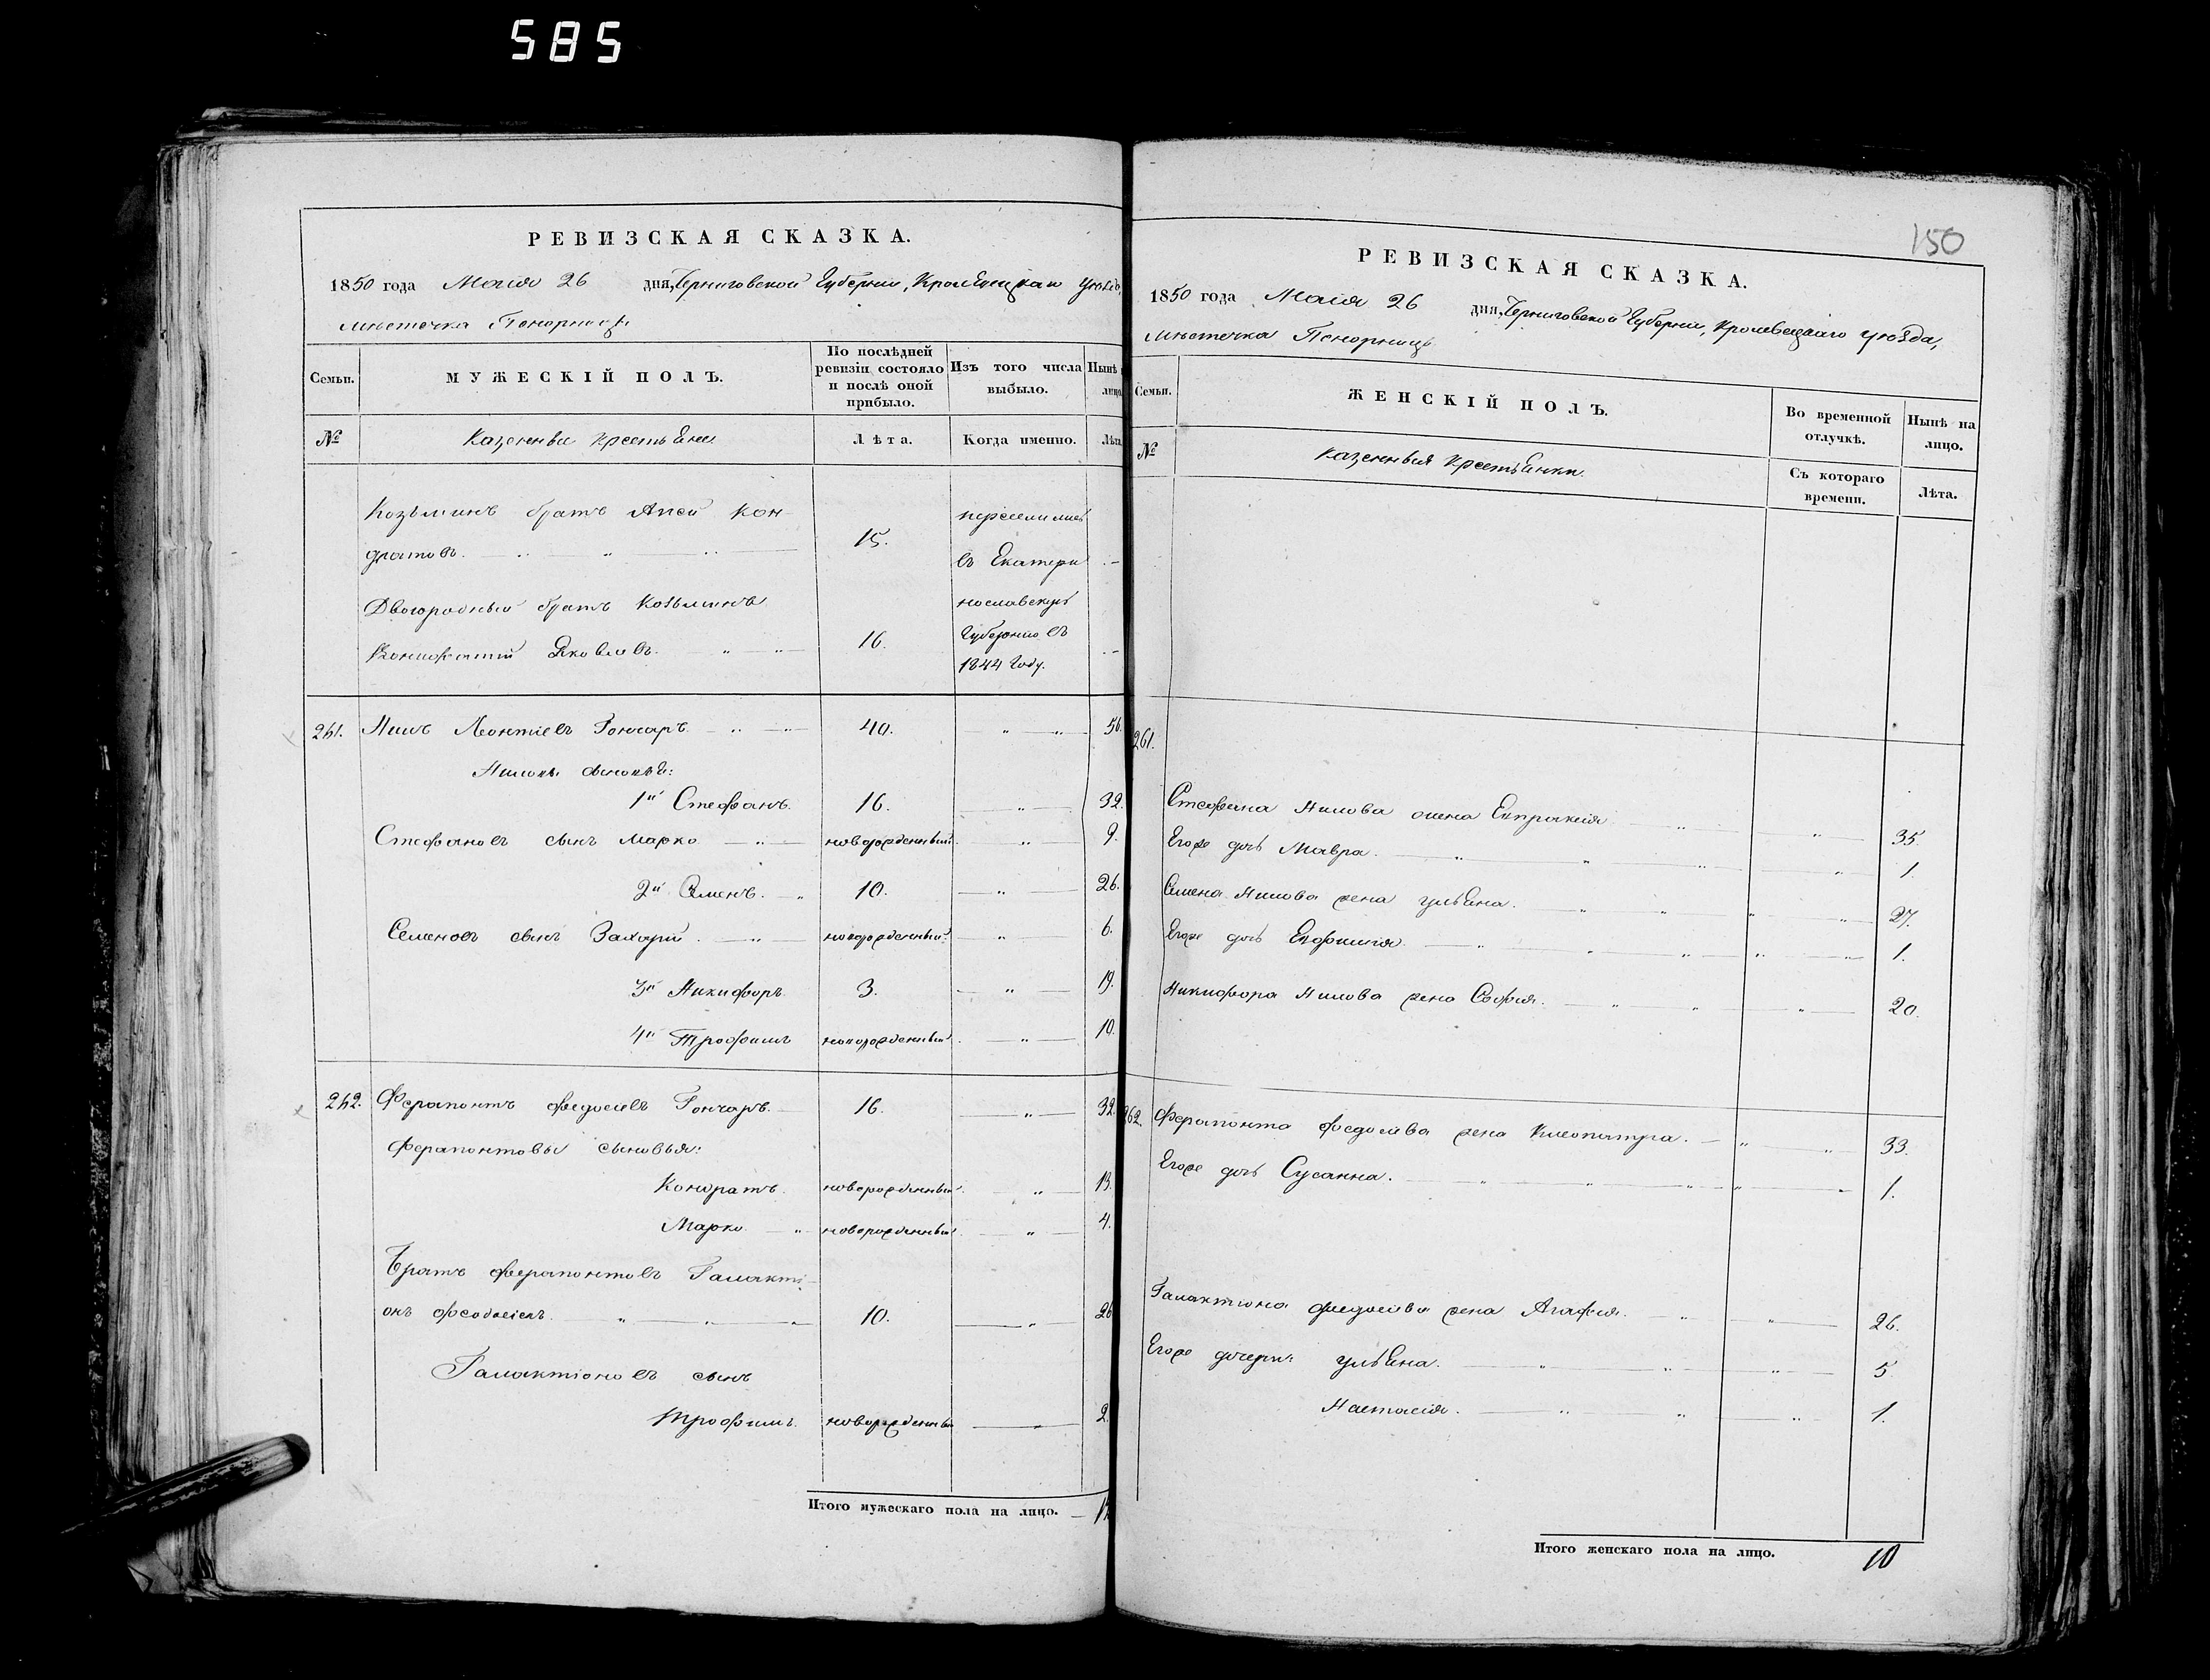 585
РЕВИЗСКАЯ СКАЗКА.
1850 года Маія 26 дня, Черниговской Губерніи, Кролевецкаго уѣзда,
мѣстечка Понорницы
Семьи.
МУЖЕСКІЙ ПОЛЪ.
По послѣдней ревизіи состояло и послѣ оной прибыло.
Изъ того числа выбыло.
Нынѣ лицо
№
Казенные крестьяне
Лѣта.
Когда именно.
Лѣта
Козьминъ братъ Апсей Кон-
дратовъ. 15. переселились
въ Екатери
Двоюродный братъ Козьминъ нославскую
Яковлевъ. 16. Губернію въ
1844 Году.
261. Нилъ Леонтіевъ Гончаръ. 40. 56.
Ниловы сыновья:
1й Стефанъ. 16. 32.
Стефановъ сынъ Марко новорожденный. 9.
2й Семенъ. 10. 26.
Семеновъ сынъ Захарій. новорожденный. 6.
3й Никифоръ 3. 19.
4й Трофимъ новорожденный. 10.
262. Ферапонтъ Федосіевъ Гончаръ. 16. 32.
Ферапонтовы сыновья:
Кондратъ. новорожденный. 13.
Марко новорожденный. 4.
Братъ Ферапонтовъ Галакті-
онъ Феодосіевъ. 10. 26
Галактіоновъ сынъ
Трофимъ. новорожденный 2.
Итого мужескаго пола на лицо.
150
РЕВИЗСКАЯ СКАЗКА.
1850 года Маія 26 дня, Черниговской Губерніи, Кролевецкаго уѣзда,
мѣстечка Понорницы
Семьи.
ЖЕНСКІЙ ПОЛЪ.
Во временной отлучкѣ.
Нынѣ на лицо.
№
Казенныя Крестьянки.
Съ котораго времени.
Лѣта.
261.
Стефана Нилова жена Евпраксія 35.
Егоже дочь Мавра. 1.
Семена Нилова жена Ульяна. 27.
Егоже дочь Евфимія. 1.
Никифора Нилова жена Софія. 20.
262. Ферапонта Федосіева жена Клеопатра. 33.
Егоже дочь Сусанна. 1.
Галактіона Федосіева жена Агафія. 26.
Егоже дочери: Ульяна. 5.
Настасія. 1.
Итого женскаго пола на лицо. 10